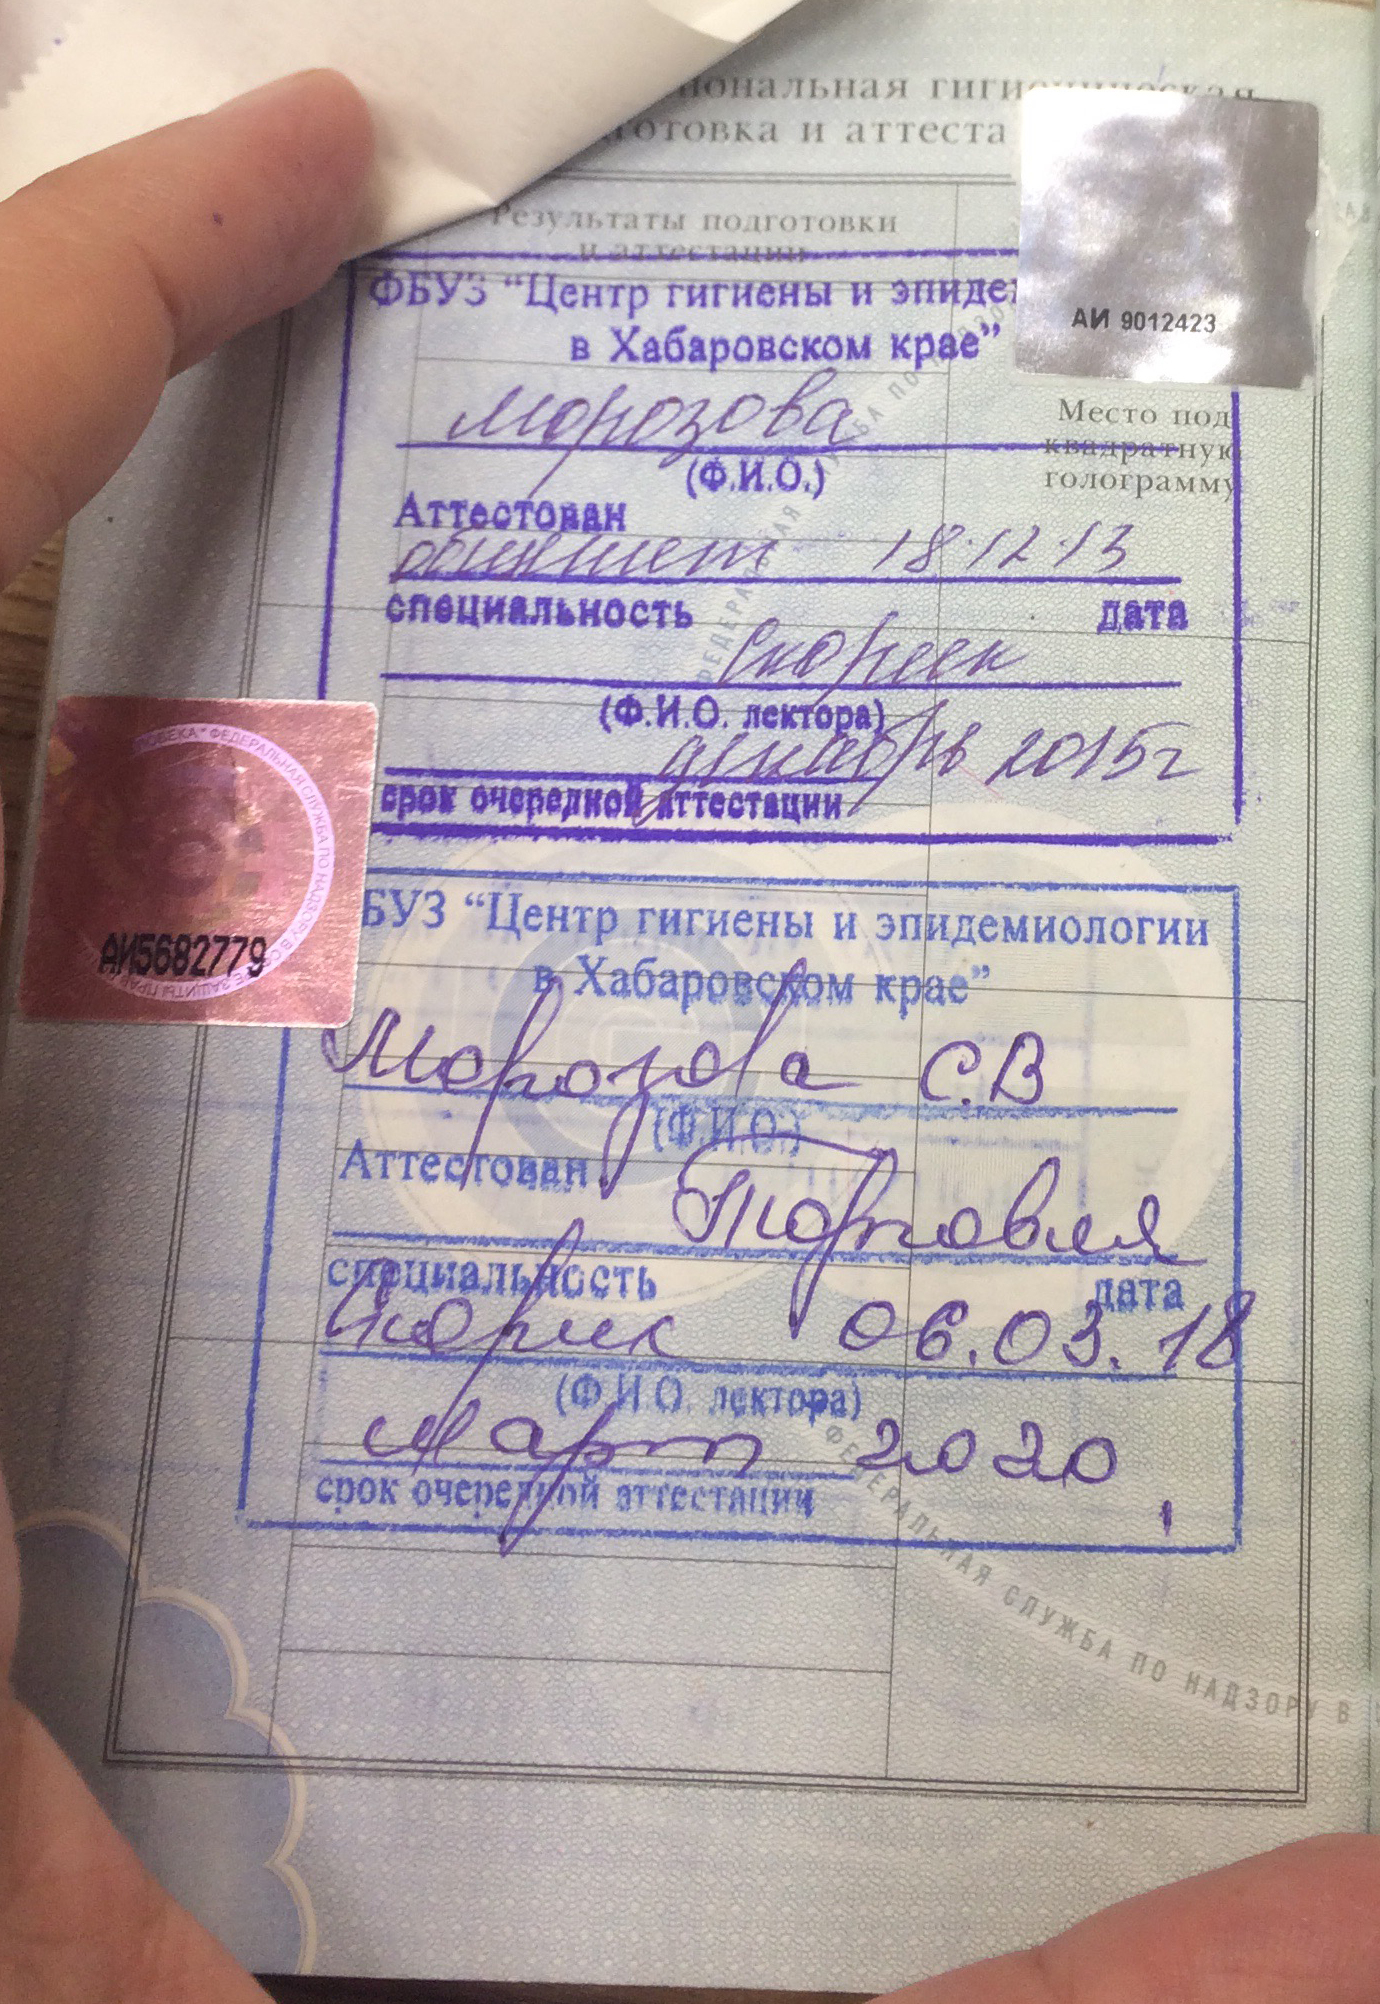 иональная гигиеническая
готовка и аттеста
Результаты подготовки
и аттестации
ФБУЗ "Центр гигиены и эпиде
в Хабаровском крае"
АИ 9012423
Морозова
(Ф.И.О.)
Место под
квадратную
голограмму
Аттестован
18.12.13
специальность дата
(Ф.И.О. лектора)
декабрь 2015г
срок очередной аттестации
АИ5682779
БУЗ "Центр гигиены и эпидемиологии
в Хабаровском крае"
Морозова С.В
(Ф.И.О.)
Аттестован Торговля
специальность дата
06.03.18
(Ф.И.О. лектора)
март 2020
срок очередной аттестации
ФЕДЕРАЛЬНАЯ СЛУЖБА ПО НАДЗОРУ В